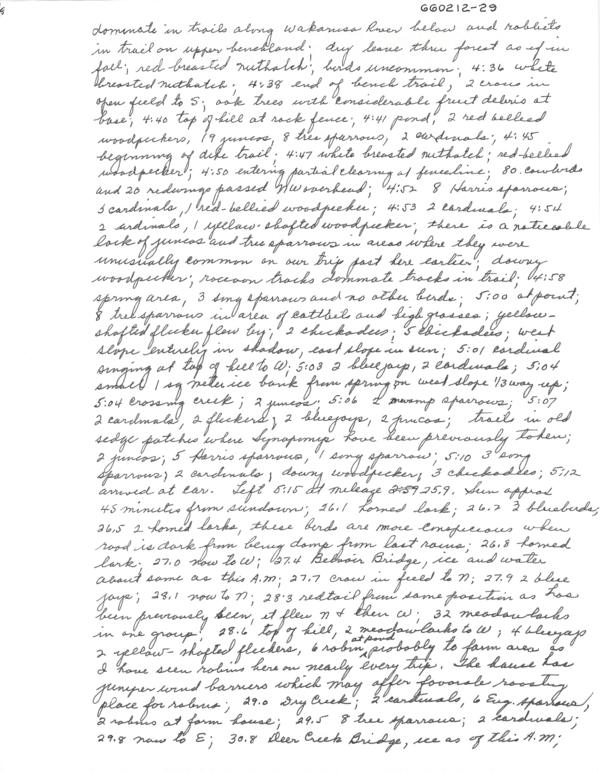 GG0212-29
dominate in trails along Wakarusa River below and rabbits
in trail on upper benchland; dry leave thru forest as if in
fall; red-breasted nuthatch; birds uncommon; 4:36 white
breasted nuthatch; 4:38 end of bench trail, 2 crows in
open field to S; oak trees with considerable fruit debris at
base; 4:40 top of hill at rock fence; 4:41 pond, 2 red bellied
woodpeckers, 19 juncos, 8 tree sparrows, 2 cardinals; 4:45
beginning of dike trail; 4:47 white breasted nuthatch; red-bellied
woodpecker; 4:50 entering partial clearing at fenceline; 80 cowbirds
and 20 redwings passed NW overhead; 4:52 8 Harris sparrows;
3 cardinals, 1 red-bellied woodpecker; 4:53 2 cardinals; 4:54
2 cardinals, 1 yellow-shafted woodpecker; there is a noticeable
lack of juncos and tree sparrows in areas where they were
unusually common on our trip past here earlier; downy
woodpecker; raccoon tracks dominate tracks in trail; 4:58
spring area, 3 song sparrows and no other birds; 5:00 at point;
8 tree sparrows in area of cattails and high grasses; yellow-
shafted flicker flew by; 2 chickadees; 5 chickadees; west
slope entirely in shadow, east slope in sun; 5:01 cardinal
singing at top of hill to W; 5:03 2 bluejays, 2 cardinals; 5:04
small 1 sq meter ice bank from spring on west slope 1/3 way up;
5:04 crossing creek; 2 juncos; 5:06 2 swamp sparrows; 5:07
2 cardinals, 2 flickers; 2 bluejays, 2 juncos; trails in old
sedge patches where Synaptomys have been previously taken;
2 juncos; 5 Harris sparrows, 1 song sparrow; 5:10 3 song
sparrows; 2 cardinals; downy woodpecker; 3 chickadees; 5:12
arrived at car. Left 5:15 at mileage 25.9. Sun approx
45 minutes from sundown; 26.1 horned lark; 26.2 3 bluebirds;
26.5 2 horned larks, these birds are more conspicuous when
road is dark from being damp from last rains; 26.8 horned
lark; 27.0 now to W; 27.4 Belvoir Bridge, ice and water
about same as this A.M; 27.7 crow in field to N; 27.9 2 blue
jays; 28.1 now to N; 28.3 redtail from same position as has
been previously seen, it flew N & then W; 32 meadowlarks
in one group; 28.6 top of hill, 2 meadowlarks to W; 4 bluejays
2 yellow-shafted flickers, 6 robins at pond, probably to farm area as
I have seen robins here on nearly every trip. The house has
juniper wind barriers which may offer favorable roosting
place for robins; 29.0 Dry Creek; 2 cardinals, 6 Eng. sparrows,
2 robins at farm house; 29.5 8 tree sparrows; 2 cardinals;
29.8 now to E; 30.8 Deer Creek Bridge, ice as of this A.M;